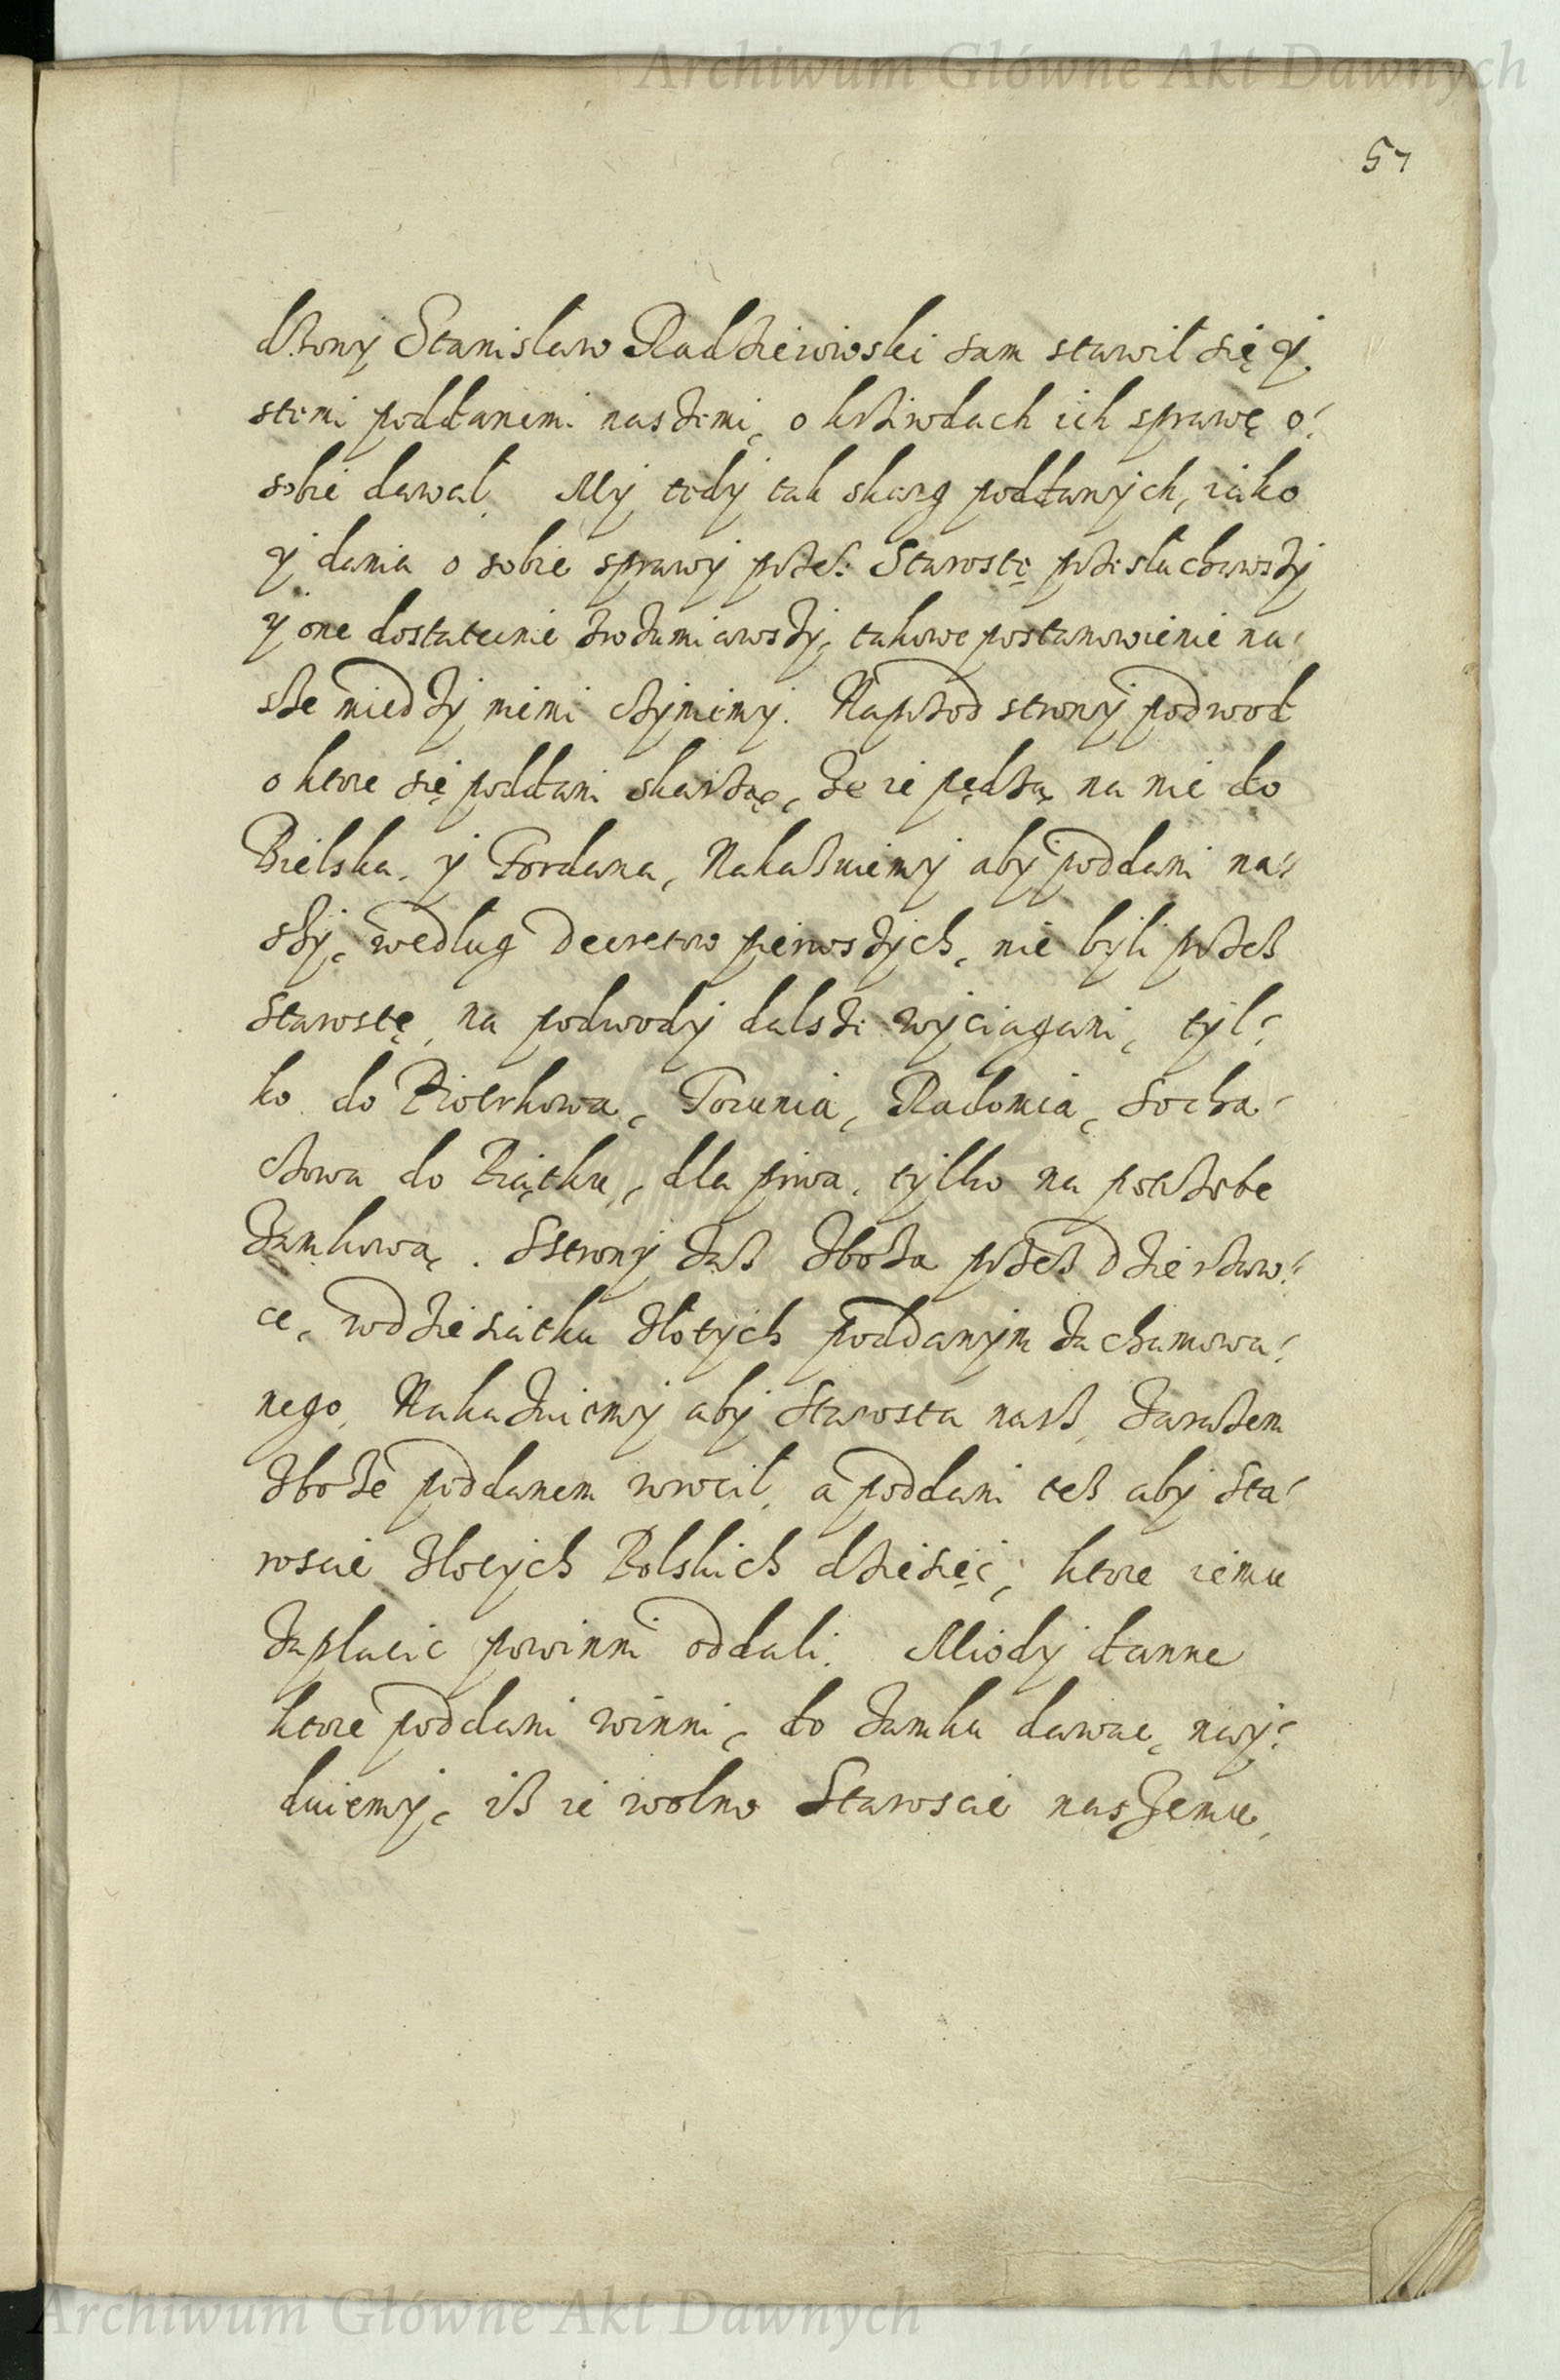 Archiwum Główne Akt Dawnych
57
dzony Stanisław Radzieiowski sam stawił się y
stemi poddanemi naszemi, o krziwdach ich sprawę o-
sobie dawał. My tedy tak skarg poddanych, iako
y dania o sobie sprawy przes Starostę przesłuchawszy
y one dostatecnie zrozumiawszy, takowe postanowienie na-
sze miedzy niemi czyniemy. Naprzod strony podwod
o ktore się poddani skarżą, że ie pędzą na nie do
Bielska, y Fordana, Nakazuiemy aby poddani na-
szy, według decretow pierwszych, nie byli przez
Starostę, na podwody dalsze wyciągani, tyl-
ko do Piotrkowa, Torunia, Radomia, Socha-
czowa do Piątku, dla piwa, tylko na potrzebę
zamkową. Sstrony zaś zboża przez dzierżaw-
cę, wdziesiątku złotych poddanym zachamowa-
nego, Nakazuiemy aby Starosta nasz, zarazem
zboże poddanem wrocił, a poddani też aby Sta-
roscie złotych Polskich dziesięć, ktore iemu
zapłacic powinni oddali. Miody danne
ktore poddani winni, do zamku dawac, nay-
duiemy, isz ie wolno Staroscie naszemu,
Archiwum Główne Akt Dawnych